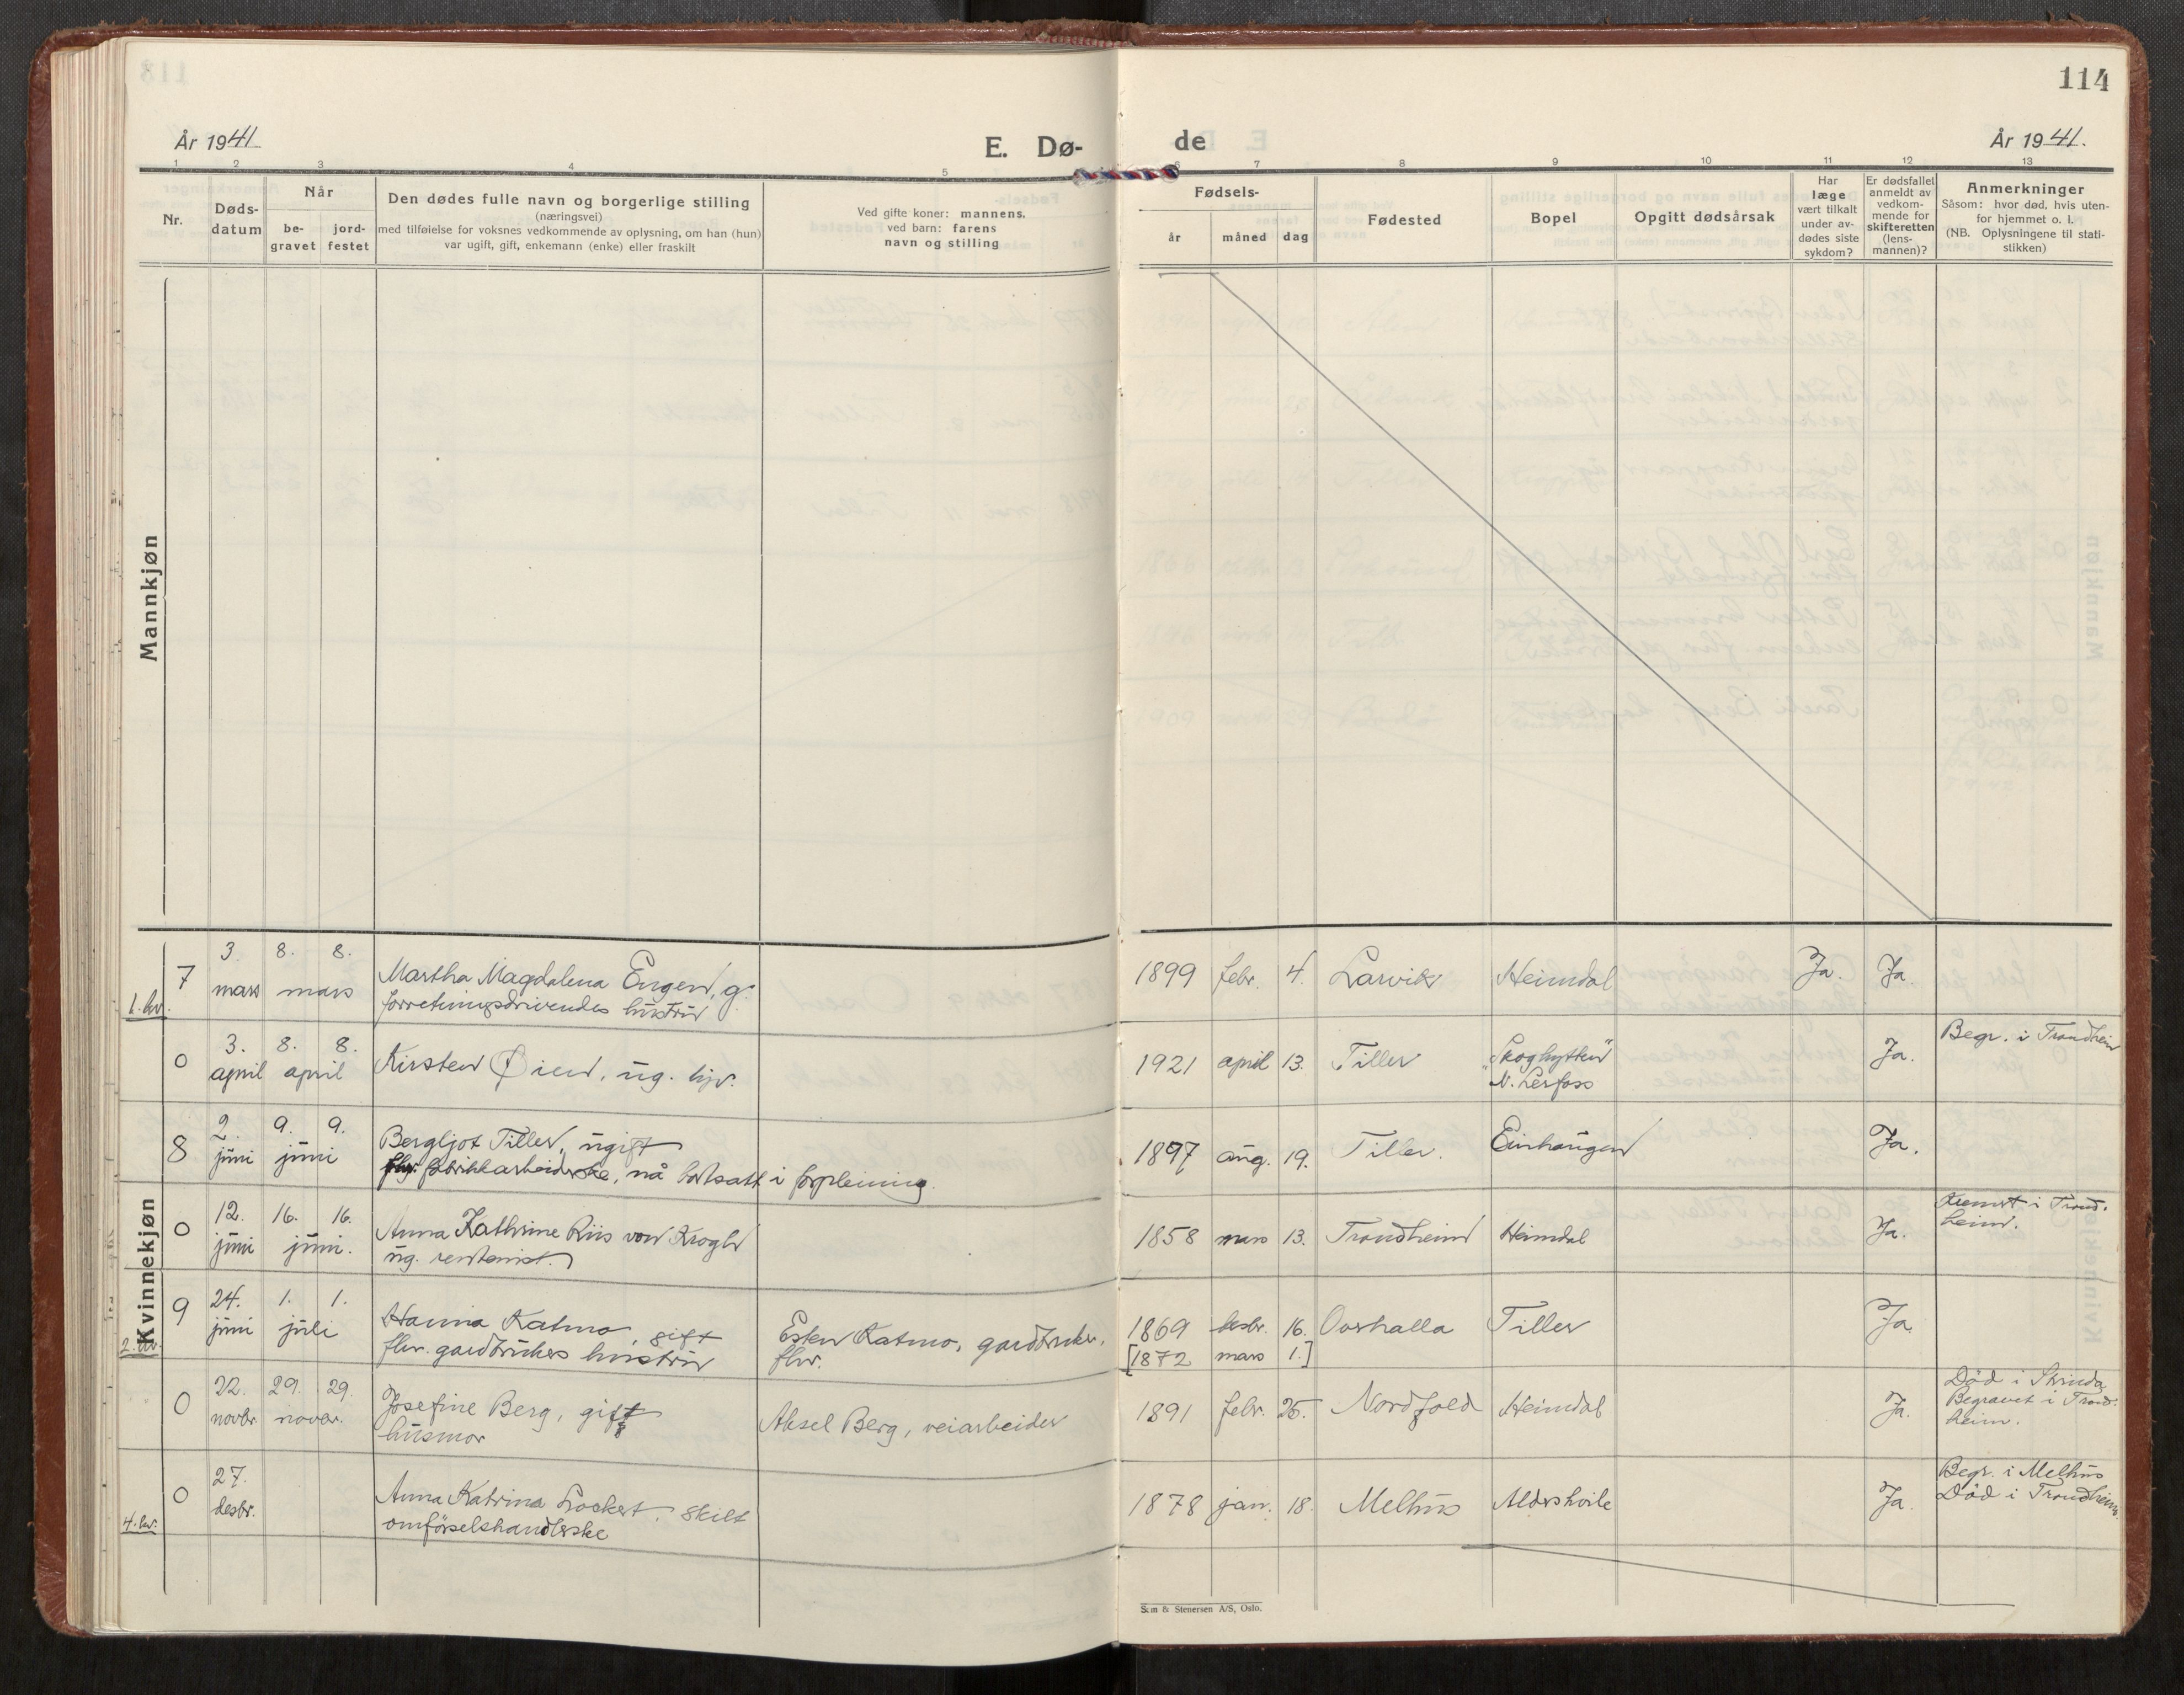 114
År 1941
E. Dø-
de
År 1941.
1 2 3 4 5 6 7 8 9 10 11 12 13
Nr.
Døds-
datum
Når
be-
gravet
jord-
festet
Den dødes fulle navn og borgerlige stilling
(næringsvei)
med tilføielse for voksnes vedkommende av oplysning, om han (hun)
var ugift, gift, enkemann (enke) eller fraskilt
Ved gifte koner: mannens.
ved barn: farens
navn og stilling
Fødsels-
år måned dag
Fødested
Bopel
Opgitt dødsårsak
Har
læge
vært tilkalt
under av-
dødes siste
sykdom?
Er dødsfallet
anmeldt av
vedkom-
mende for
skifteretten
(lens-
mannen)?
Anmerkninger
Såsom: hvor død, hvis uten-
for hjemmet o. l.
(NB. Oplysningene til stati-
stikken)
Mannkjøn
Kvinnekjøn
1. kv.
7
3. 8. 8.
mars mars
Martha Magdalena Engen, g.
forretningsdrivendes hustru
1899 febr. 4. Larvik Heimdal Ja. Ja.
0
3. 8. 8.
april april
Kirsten Øien, ug. hjv.
1921 april 13. Tiller "Skoghytten"
N. Lerfoss
Ja.
Begr. i Trondheim
8
2. 9. 9.
juni juni
Bergljot Tiller, ugift
fhv. fabrikkarbeiderske, nå bortsatt i forpleining.
1897 aug. 19. Tiller. Einhaugen Ja.
0
12. 16. 16.
juni juni.
Anna Kathrine Riis von Krogh
ug. rentenist.
1858 mars 13. Trondheim Heimdal Ja.
Kremert i Trond-
heim.
2. kv.
9
24. 1. 1.
juni juli
Hanna Katmo, gift
fhv. gardbrukers hustru
Esten Katmo, gardbruker,
fhv.
1869 desbr. 16. Overhalla Tiller Ja.
[1872 mars 1.]
0
22. 29. 29.
novbr. novbr.
Josefine Berg, gift
husmor
Aksel Berg, veiarbeider
1891 febr. 25. Nordfold Heimdal Ja.
Död i Strinda
Begravet i Trond-
heim.
4. kv.
0
27.
desbr.
Anna Katrina Lockert, skilt
omførselshandlerske
1878 jan. 18. Melhus Aldershvile Ja.
Begr. i Melhus
Död i Trondheim.
Sem & Stenersen A/S, Oslo.